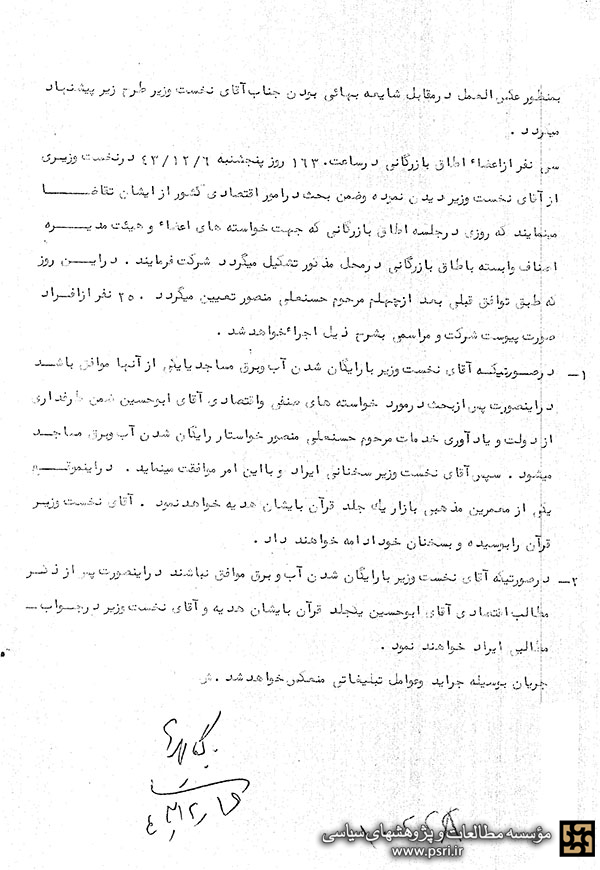 بمنظور عکس العمل در مقابل شایعه بهائی بودن جناب آقای نخست وزیر طرح زیر پیشنهاد
میگردد .
سی نفر از اعضاء اطاق بازرگانی در ساعت ۱۶۳۰ روز پنجشنبه ۴۳/۱۲/۶ در نخست وزیری
از آقای نخست وزیر دیدن نموده وضمن بحث در امور اقتصادی کشور از ایشان تقاضا
مینمایند که روزی در جلسه اطاق بازرگانی که جهت خواسته های اعضاء و هیئت مدیره
اصناف وابسته باطاق بازرگانی در محل مذکور تشکیل میگردد شرکت فرمایند . در این روز
که طبق توافق قبلی بعد از چهلم مرحوم حسنعلی منصور تعیین میگردد ۲۵۰ نفر از افراد
صورت پیوست شرکت و مراسمی بشرح ذیل اجراء خواهد شد .
۱- در صورتیکه آقای نخست وزیر با رایگان شدن آب وبرق مساجد یا یکی از آنها موافق باشد
در اینصورت پس از بحث در مورد خواسته های صنفی واقتصادی آقای ابوحسین ضمن طرفداری
از دولت و یاد آوری خدمات مرحوم حسنعلی منصور خواستار رایگان شدن آب وبرق مساجد
میشود . سپس آقای نخست وزیر سخنانی ایراد و با این امر موافقت مینماید . در اینموقع
یکی از معمرین مذهبی بازار یك جلد قرآن بایشان هدیه خواهد نمود . آقای نخست وزیر
قرآن را بوسیده و بسخنان خود ادامه خواهند داد .
۲- در صورتیکه آقای نخست وزیر با رایگان شدن آب و برق موافق نباشند در اینصورت پس از ذکر
مطالب اقتصادی آقای ابوحسین یکجلد قرآن بایشان هدیه و آقای نخست وزیر در جواب -
مطالبی ایراد خواهند نمود .
جریان بوسیله جراید وعوامل تبلیغاتی منعکس خواهد شد .
مؤسسه مطالعات و پژوهشهای سیاسی
www.psri.ir